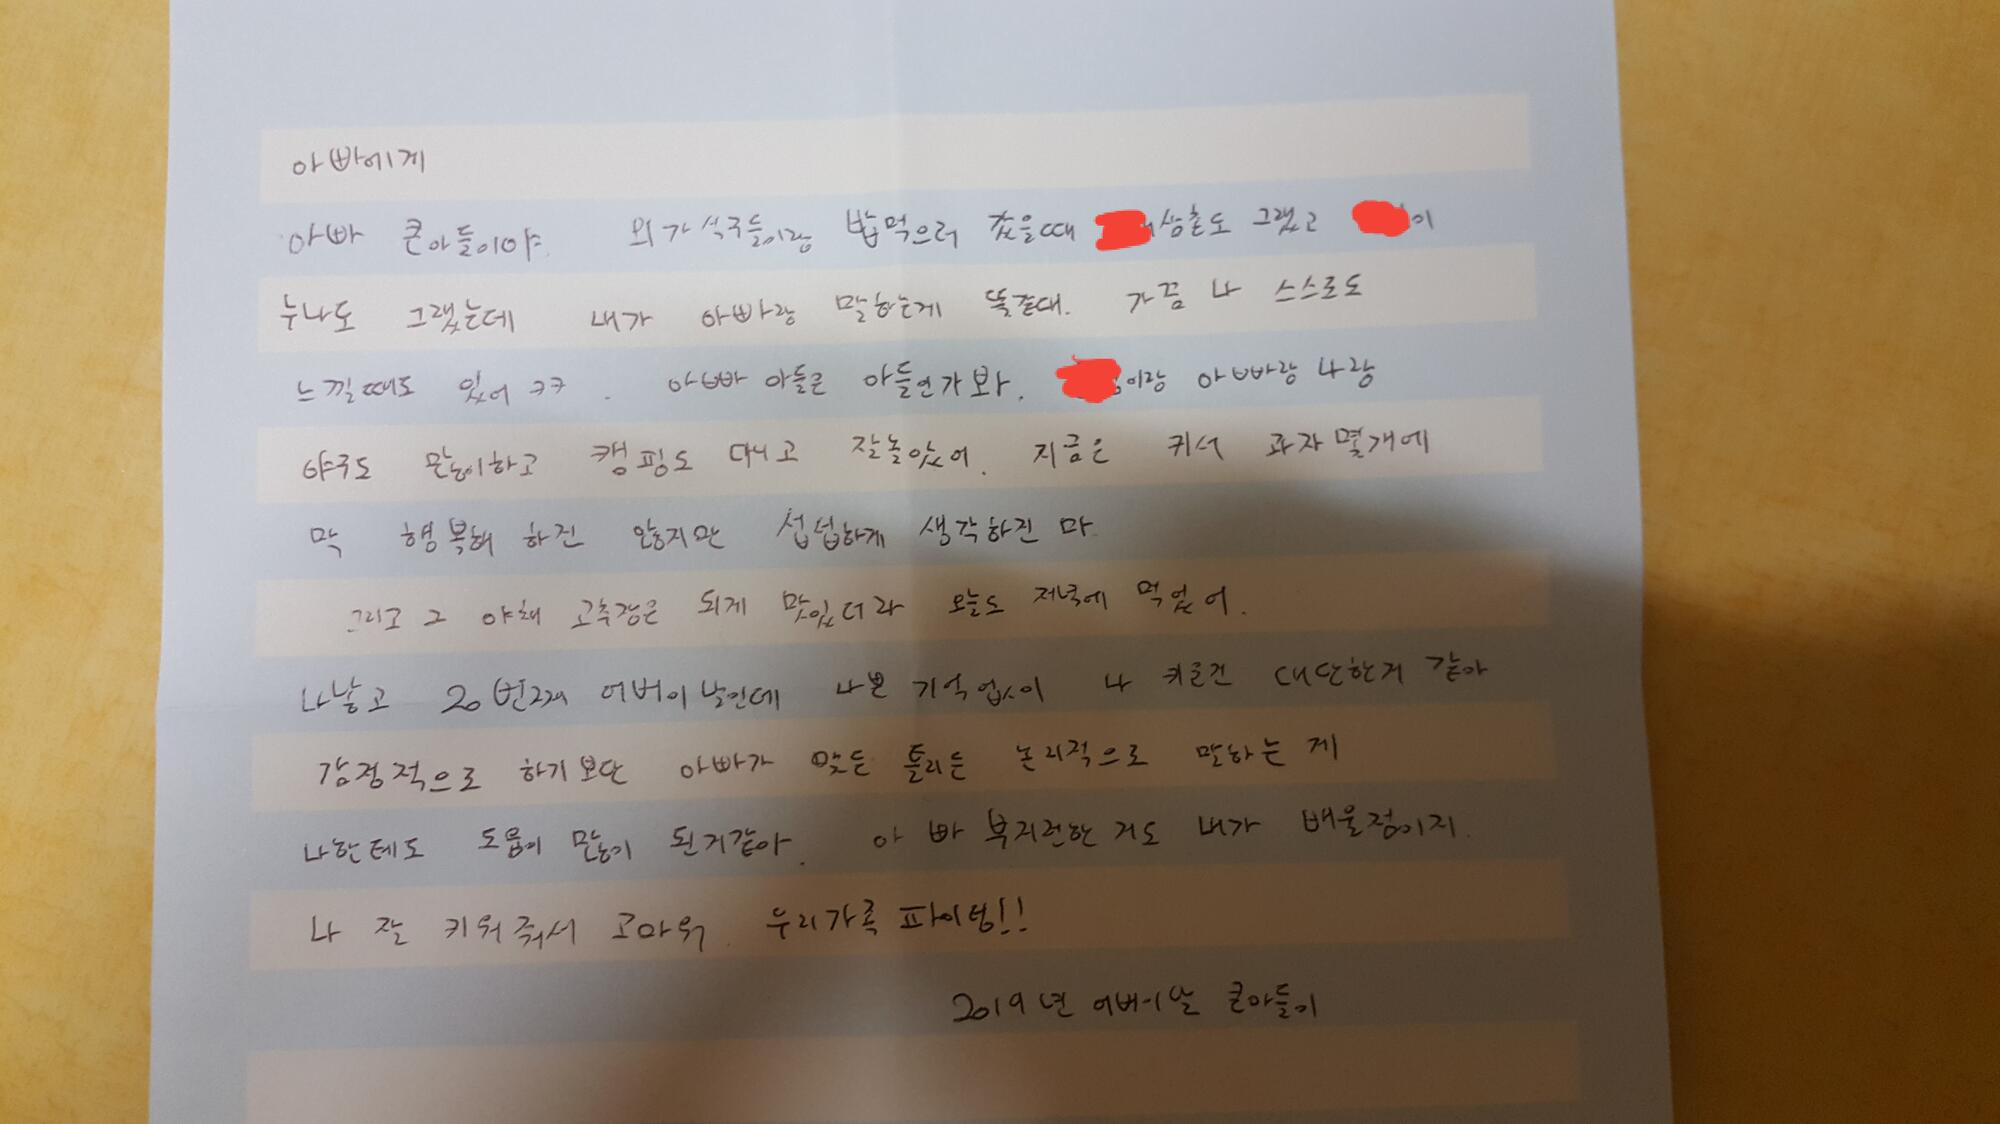 아빠에게
아빠 큰아들이야. 외가식구들이랑 밥먹으러 갔을때 삼촌도 그랬고 이
누나도 그랬는데 내가 아빠랑 말하는게 똑같대. 가끔 나 스스로도
느낄때도 있어 ㅋㅋ. 아빠 아들은 아들인가봐. 이랑 아빠랑 나랑
야구도 많이하고 캠핑도 다니고 잘놀았어. 지금은 커서 과자몇개에
막 행복해 하진 않지만 섭섭하게 생각하진 마.
그리고 그 야채 고추장은 되게 맛있더라 오늘도 저녁에 먹었어.
나낳고 20번째 어버이날인데 나쁜 기억없이 나 키른건 대단한거 같아
감정적으로 하기보단 아빠가 맞든 틀리든 논리적으로 말하는 게
나한테도 도움이 많이 된거같아. 아빠 부지런한거도 내가 배울점이지.
나 잘 키워줘서 고마워. 우리가족 파이팅!!
2019년 어버이날 큰아들이